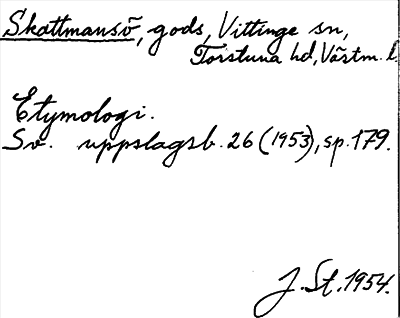 Skattmansö, gods, Vittinge sn,
Torstuna hd, Västm. l.
Etymologi.
Sv. uppslagsb. 26 (1953), sp. 179.
J. St. 1954.